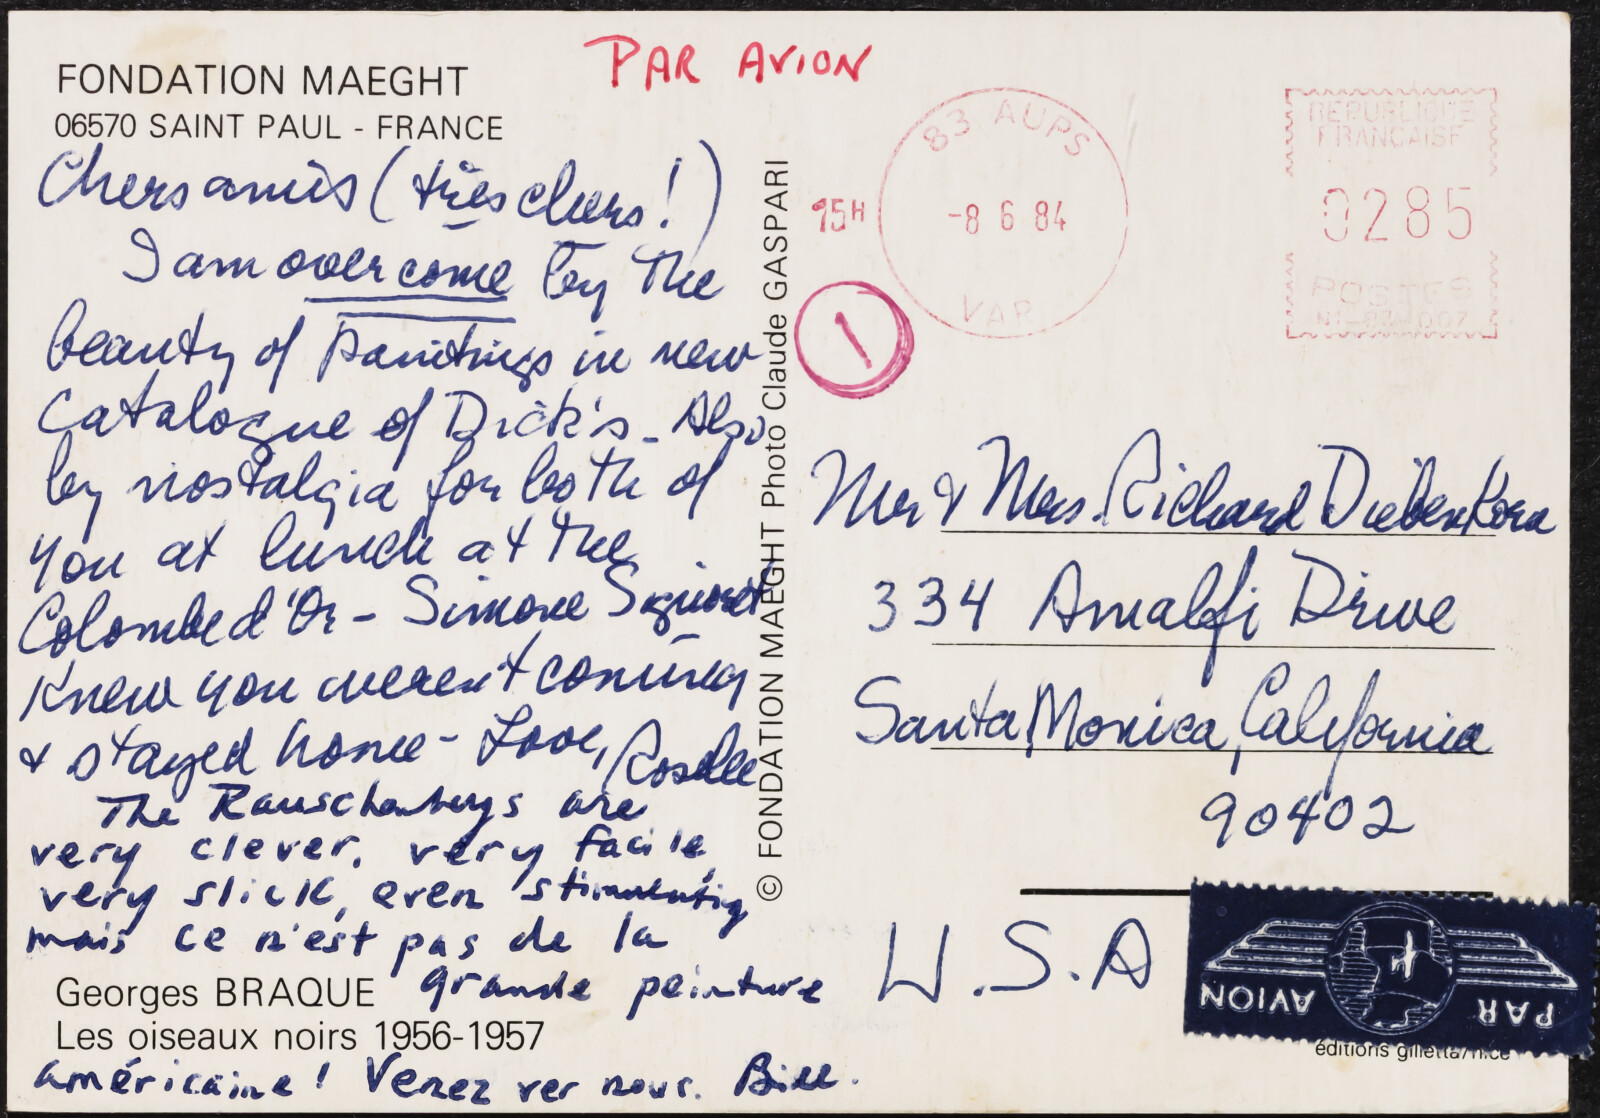 PAR AVION
FONDATION MAEGHT
06570 SAINT PAUL - FRANCE
Chers amis (très chers!)
I am overcome by the
beauty of paintings in new
catalogue of Dick's. Also
by nostalgia for both of
you at lunch at the
Colombe d'Or - Simone Signoret
knew you weren't coming
& stayed home - Love, Roselle
The Rauschenbergs are
very clever, very facile,
very slick, even stimulating
mais ce n'est pas de la
grande peinture
américaine! Venez ver nous. Bill.
Georges BRAQUE
Les oiseaux noirs 1956-1957
© FONDATION MAEGHT Photo Claude GASPARI
83 AUPS
15H
-8 6 84
VAR
1
REPUBLIQUE
FRANCAISE
0285
POSTES
Mr & Mrs. Richard Diebenkorn
334 Amalfi Drive
Santa Monica, California
90402
U.S.A
PAR AVION
éditions gilletta/nice